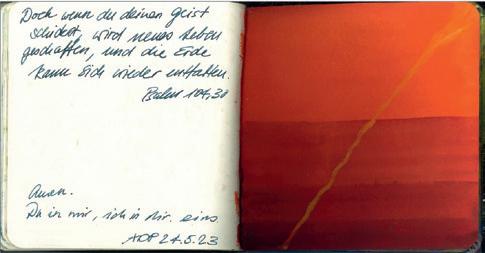 Doch wenn du deinen Geist
schickst, wird neues Leben
geschaffen, und die Erde
kann sich wieder entfalten.
Psalm 104,30
Amen.
Du in mir, ich in dir. eins
24.5.23